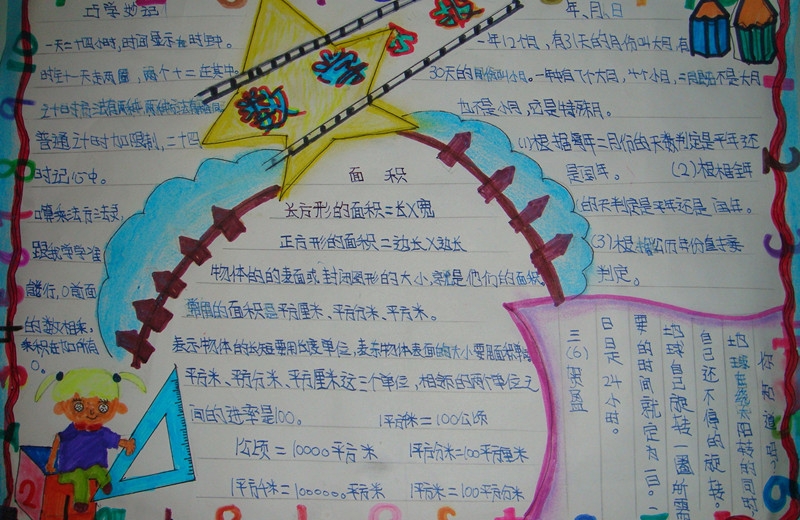 巧学妙记
一天二十四小时,时间显示在时钟中。
时针一天走两圈,两个十二在其中
普通计时加限制,二十四
时记心中。
口算乘法方法灵,
跟我学学准
能行,0前面
的数相乘,
乘积在加所有
0。
数学
年、月、日
一年12个月,有31天的月份叫大月有
30天的月份叫小月。一年中有7个大月,4个小月,二月既不是大月
也不是小月,还是特殊月。
(1)根据某年二月份的天数判定是平年还
是闰年。(2)根据全年
的天判定是平年还是闰年。
(3)根据公历年份直接
判定。
面 积
长方形的面积=长X宽
正方形的面积=边长X边长
物体的的表面或封闭图形的大小,就是他们的面积
常用的面积是平方厘米、平方分米、平方米。
表示物体的长短要用长度单位,表示物体表面的大小要用面积单位
平方米、平方分米、平方厘米这三个单位,相邻的两个单位之
间的进率是100。 1平方千米=100公顷
1公顷=10000平方米 1平方分米=100平方厘米
1平方千米=1000000平方米 1平方米=100平方分米
你知道吗?
地球在绕太阳转的同时,
自己还不停的旋转。
地球自己旋转一圈所需
要的时间就定为一日。一
日是24小时。
三(6)贺盈